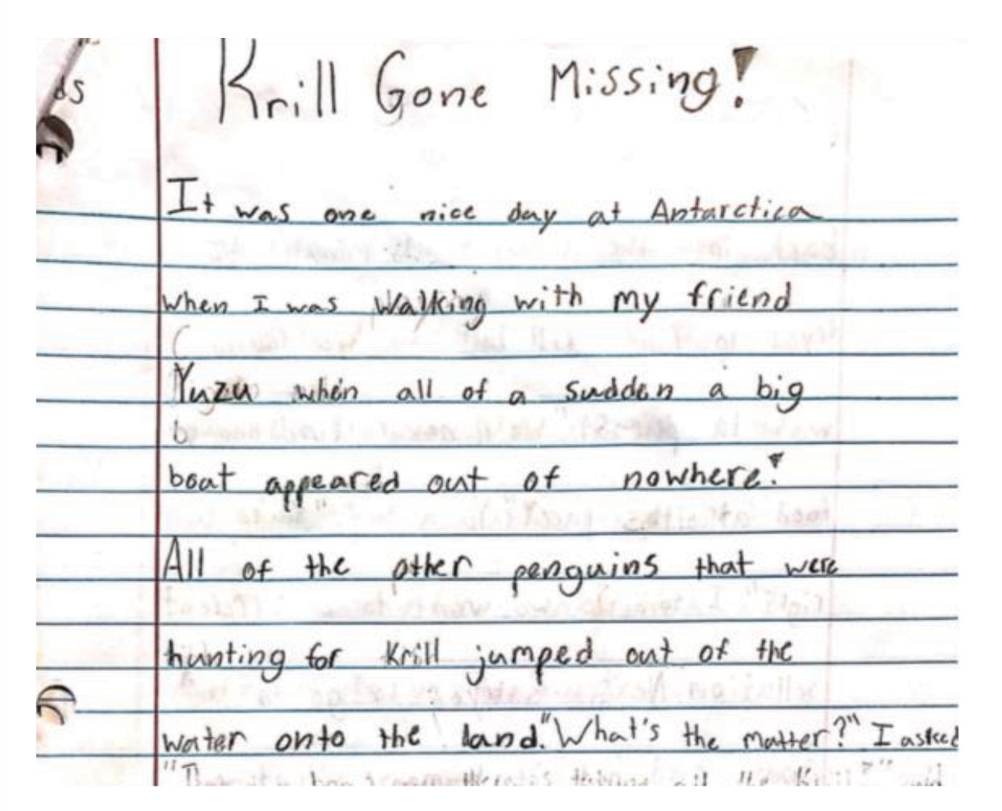 ds
Krill Gone Missing!
It was one nice day at Antarctica
when I was walking with my friend
Yuzu when all of a sudden a big
b
boat appeared out of nowhere!
All of the other penguins that were
hunting for krill jumped out of the
water onto the land. "What's the matter?" I asked